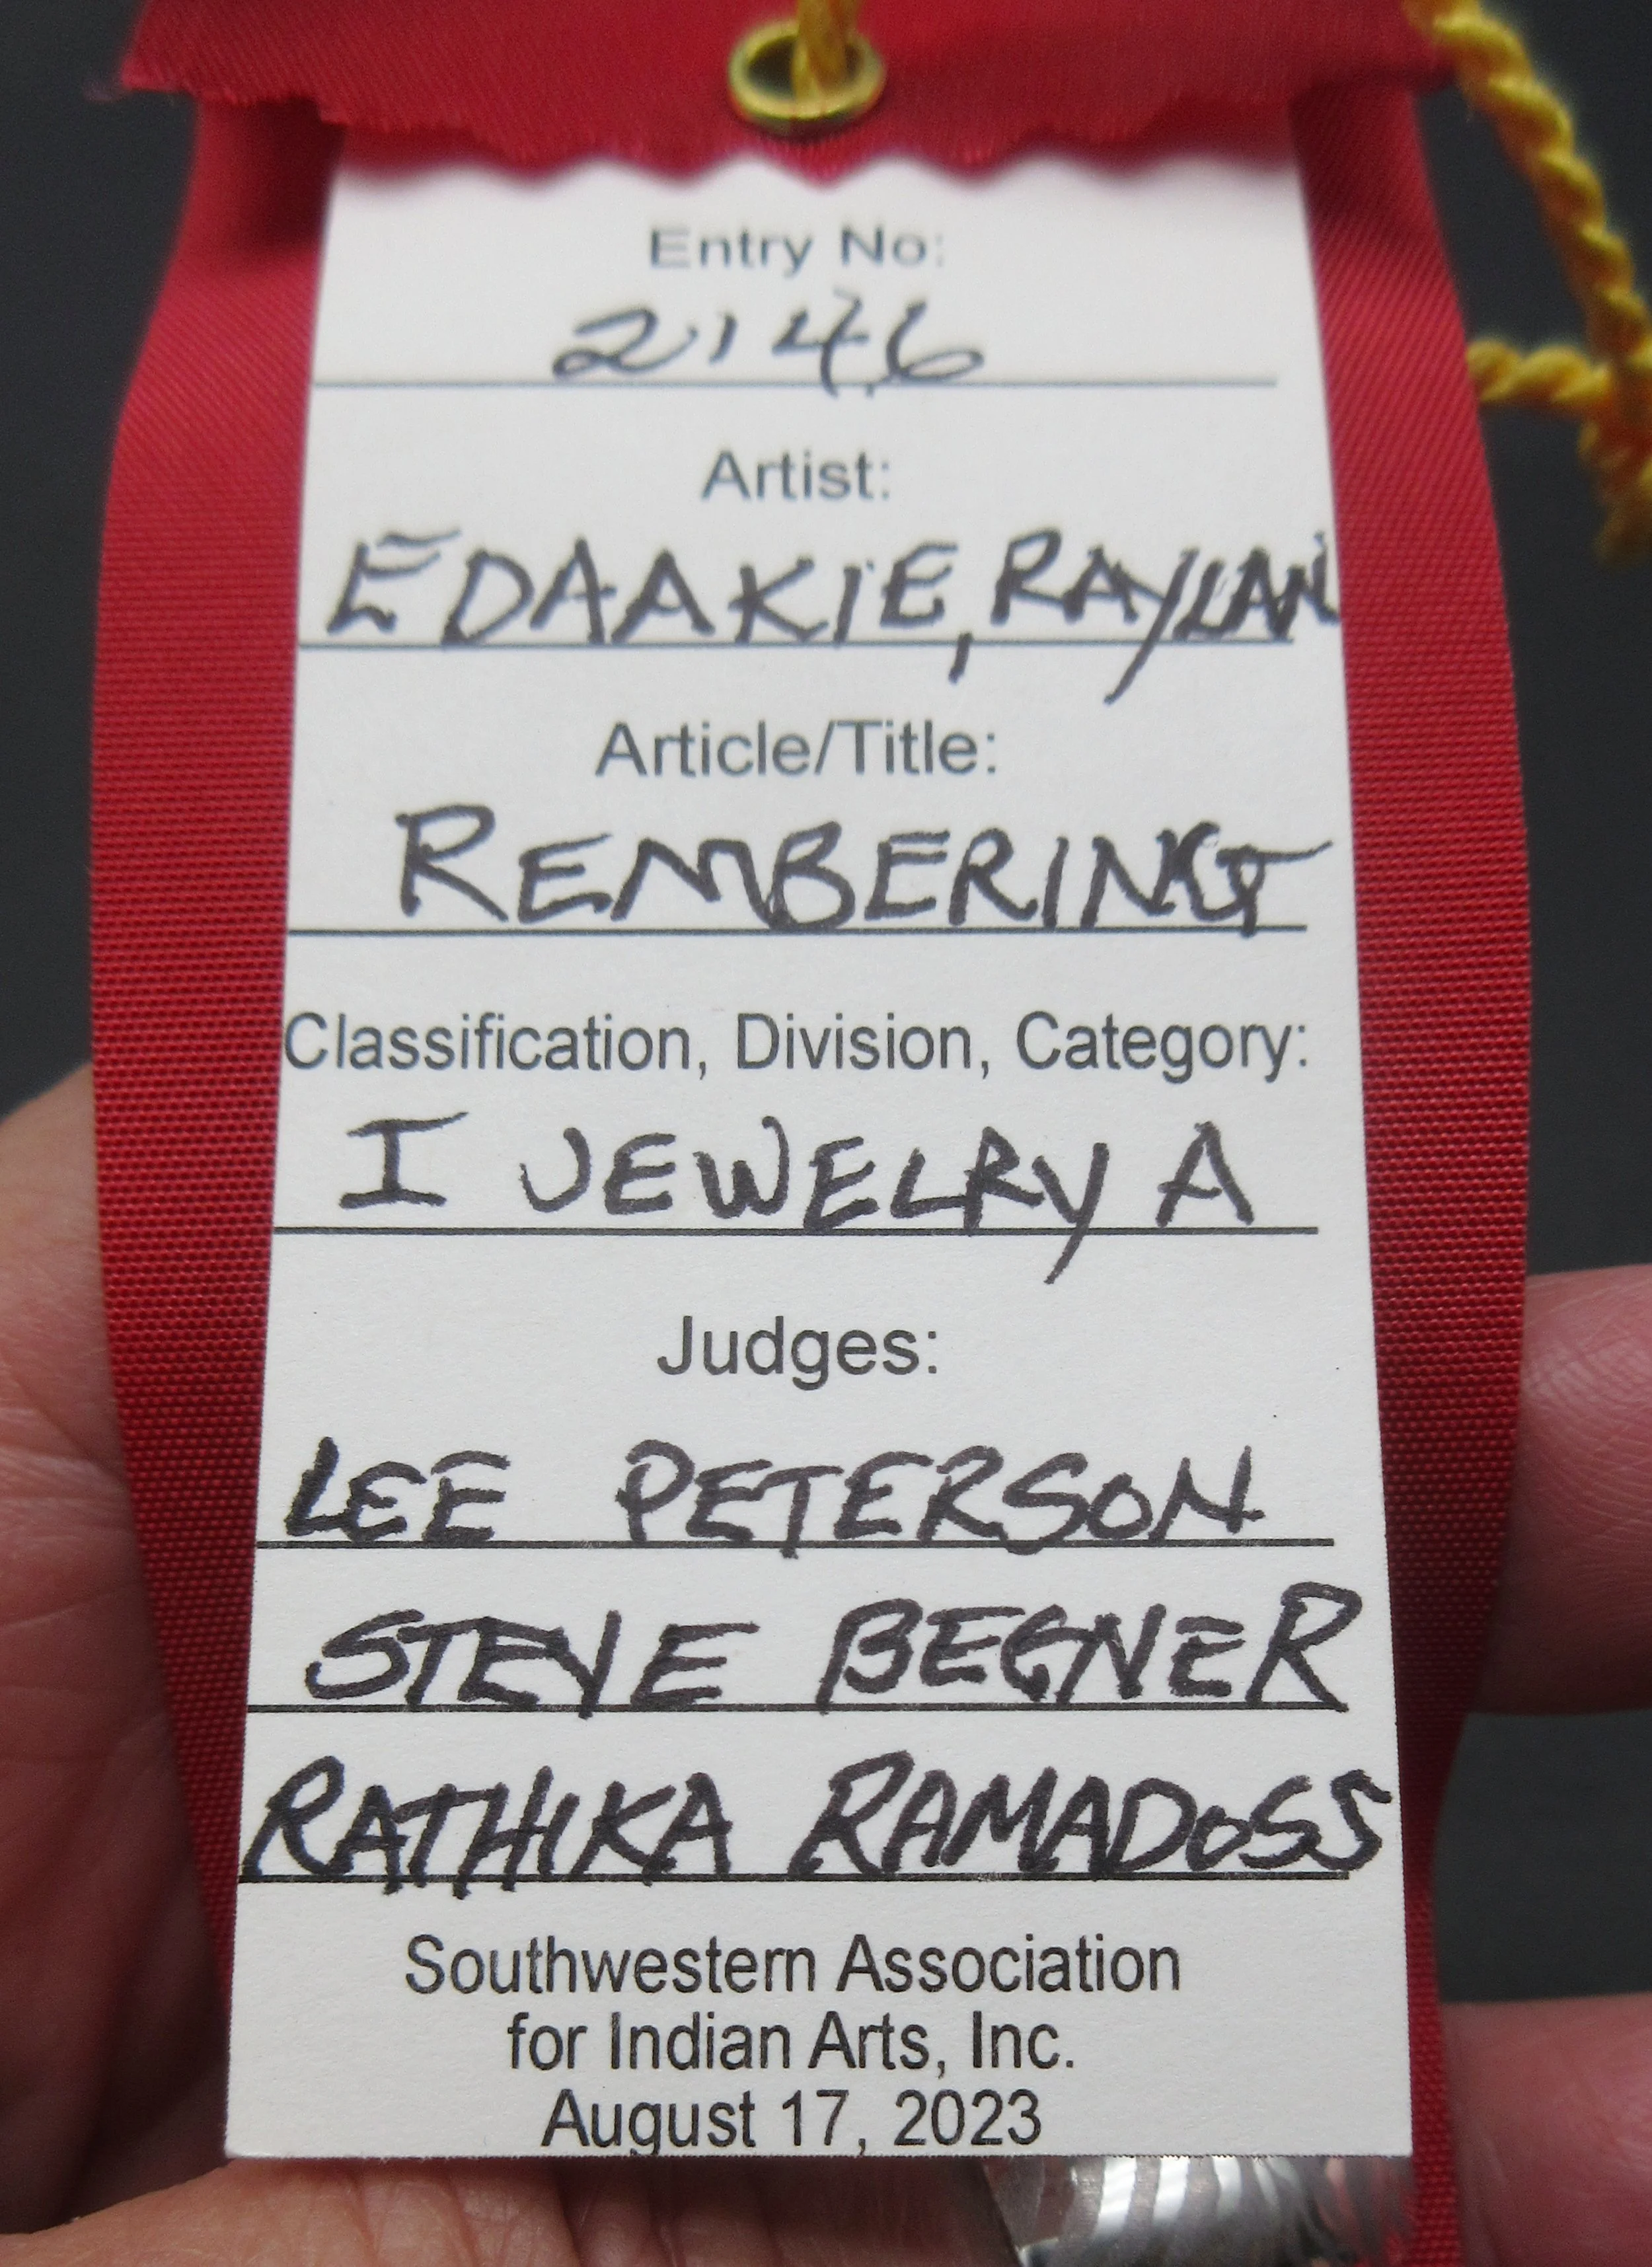 Entry No:
2146
Artist:
EDAAKIE, RAYLAN
Article/Title:
REMBERING
Classification, Division, Category:
I JEWELRY A
Judges:
LEE PETERSON
STEVE BEGNER
RATHIKA RAMADOSS
Southwestern Association
for Indian Arts, Inc.
August 17, 2023